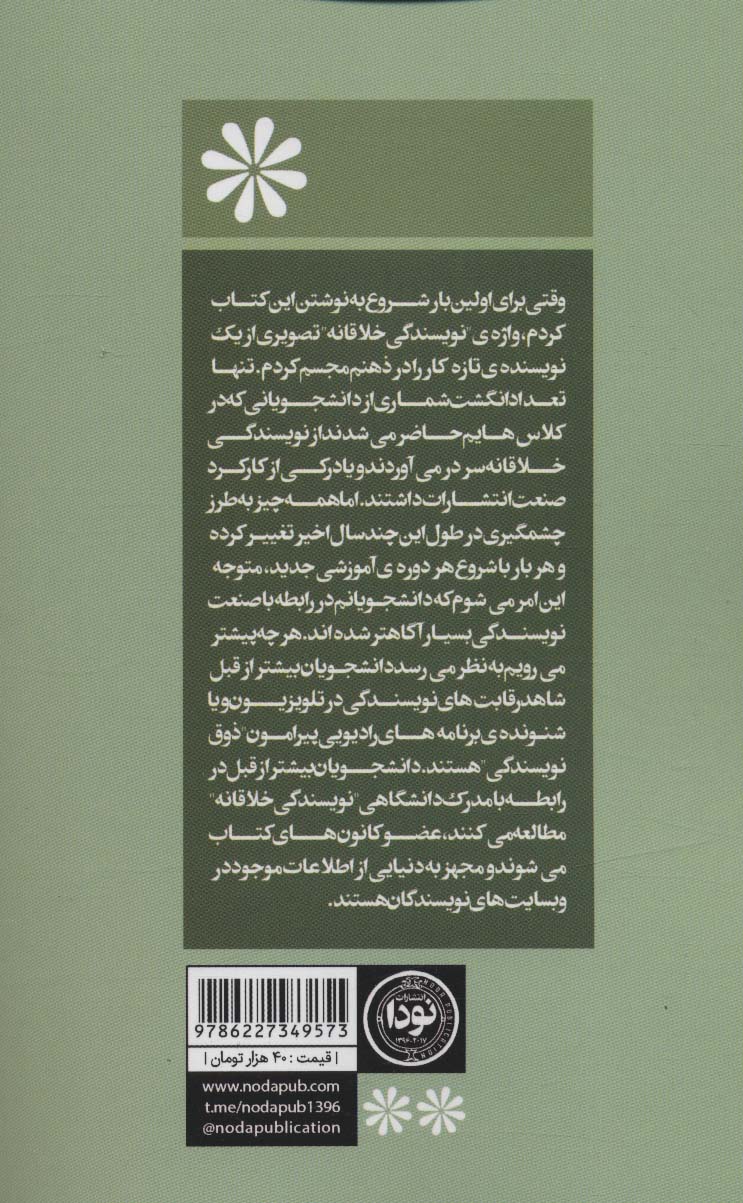 وقتی برای اولین بار شروع به نوشتن این کتاب
کردم، واژه ی "نویسندگی خلاقانه" تصویری از یک
نویسنده ی تازه کار را در ذهنم مجسم کردم. تنها
تعداد انگشت شماری از دانشجویانی که در
کلاس هایم حاضر می شدند از نویسندگی
خلاقانه سر در می آوردند و یا درکی از کارکرد
صنعت انتشارات داشتند. اما همه چیز به طرز
چشمگیری در طول این چند سال اخیر تغییر کرده
و هر بار با شروع هر دوره ی آموزشی جدید، متوجه
این امر می شوم که دانشجویانم در رابطه با صنعت
نویسندگی بسیار آگاهتر شده اند. هر چه پیشتر
می رویم به نظر می رسد دانشجویان بیشتر از قبل
شاهد رقابت های نویسندگی در تلویزیون و یا
شنونده ی برنامه های رادیویی پیرامون "ذوق
نویسندگی" هستند. دانشجویان بیشتر از قبل در
رابطه با مدرک دانشگاهی "نویسندگی خلاقانه"
مطالعه می کنند، عضو کانون های کتاب
می شوند و مجهز به دنیایی از اطلاعات موجود در
وبسایت های نویسندگان هستند.
9786227349573
| قیمت : ۴۰ هزار تومان |
www.nodapub.com
t.me/nodapub1396
@nodapublication
NODA PUBLICATION
انتشارات
نودا
۱۳۹۶-۲۰۱۷